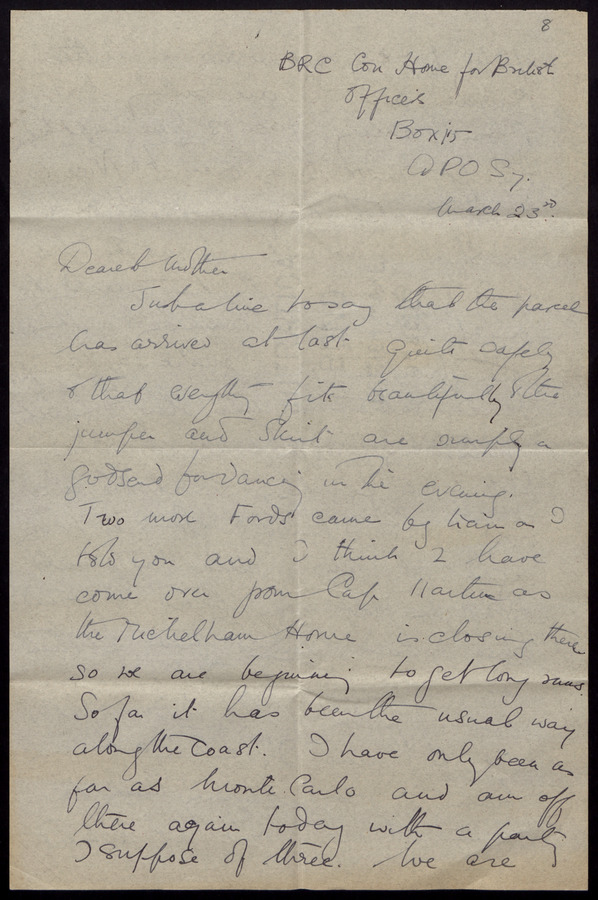 8
BRC Con Home for British
Officers
Box 15
APO S 7.
March 23rd.
Dearest Mother
Just a line to say that the parcel
has arrived at last quite safely
& that everything fits beautifully & the
jumper and skirt are simply a
godsend for dancing in the evening.
Two more Fords came by train as I
told you and I think 2 have
come over from Cap Martin as
the Michelham Home is closing there
so we are beginning to get long runs.
So far it has been the usual way
along the coast. I have only been as
far as Monte Carlo and am off
there again today with a party
I suppose of three. We are